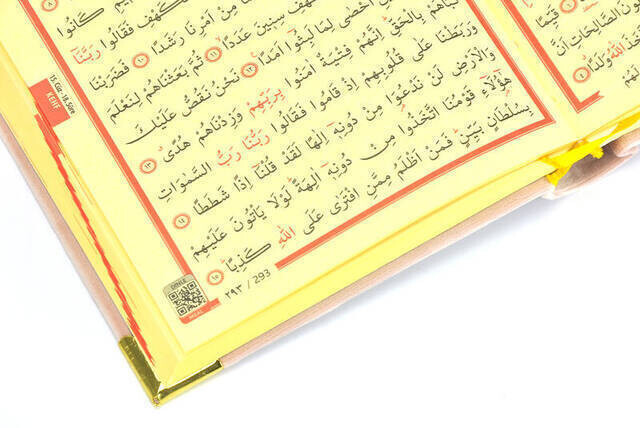 كَهْفِ فَقَالُوا رَبَّنَا
مِنْ اَمْرِنَا رَشَدًا ﴿١٠﴾ فَضَرَبْنَا
كَهْفِ سِنٖينَ عَدَدًا ﴿١١﴾ ثُمَّ بَعَثْنَاهُمْ لِنَعْلَمَ
اَحْصٰى لِمَا لَبِثُٓوا اَمَدًا ﴿١٢﴾ نَحْنُ نَقُصُّ عَلَيْكَ
نَبَاَهُمْ بِالْحَقِّ اِنَّهُمْ فِتْيَةٌ اٰمَنُوا بِرَبِّهِمْ وَزِدْنَاهُمْ هُدًى ﴿١٣﴾
وَرَبَطْنَا عَلٰى قُلُوبِهِمْ اِذْ قَامُوا فَقَالُوا رَبُّنَا رَبُّ السَّمٰوَاتِ
وَالْاَرْضِ لَنْ نَدْعُوَا۬ مِنْ دُونِهٖٓ اِلٰهًا لَقَدْ قُلْنَٓا اِذًا شَطَطًا ﴿١٤﴾
هٰٓؤُ۬لَٓاءِ قَوْمُنَا اتَّخَذُوا مِنْ دُونِهٖٓ اٰلِهَةً لَوْلَا يَاْتُونَ عَلَيْهِمْ
بِسُلْطَانٍ بَيِّنٍ فَمَنْ اَظْلَمُ مِمَّنِ افْتَرٰى عَلَى اللّٰهِ كَذِبًا ﴿١٥﴾
٢٩٣ / 293
15. Cüz - 18. Sure
KEHF
DİNLE
قَيِّمًا
الصَّالِحَاتِ اَنَّ
اللّٰهُ وَلَدًا ﴿٤﴾